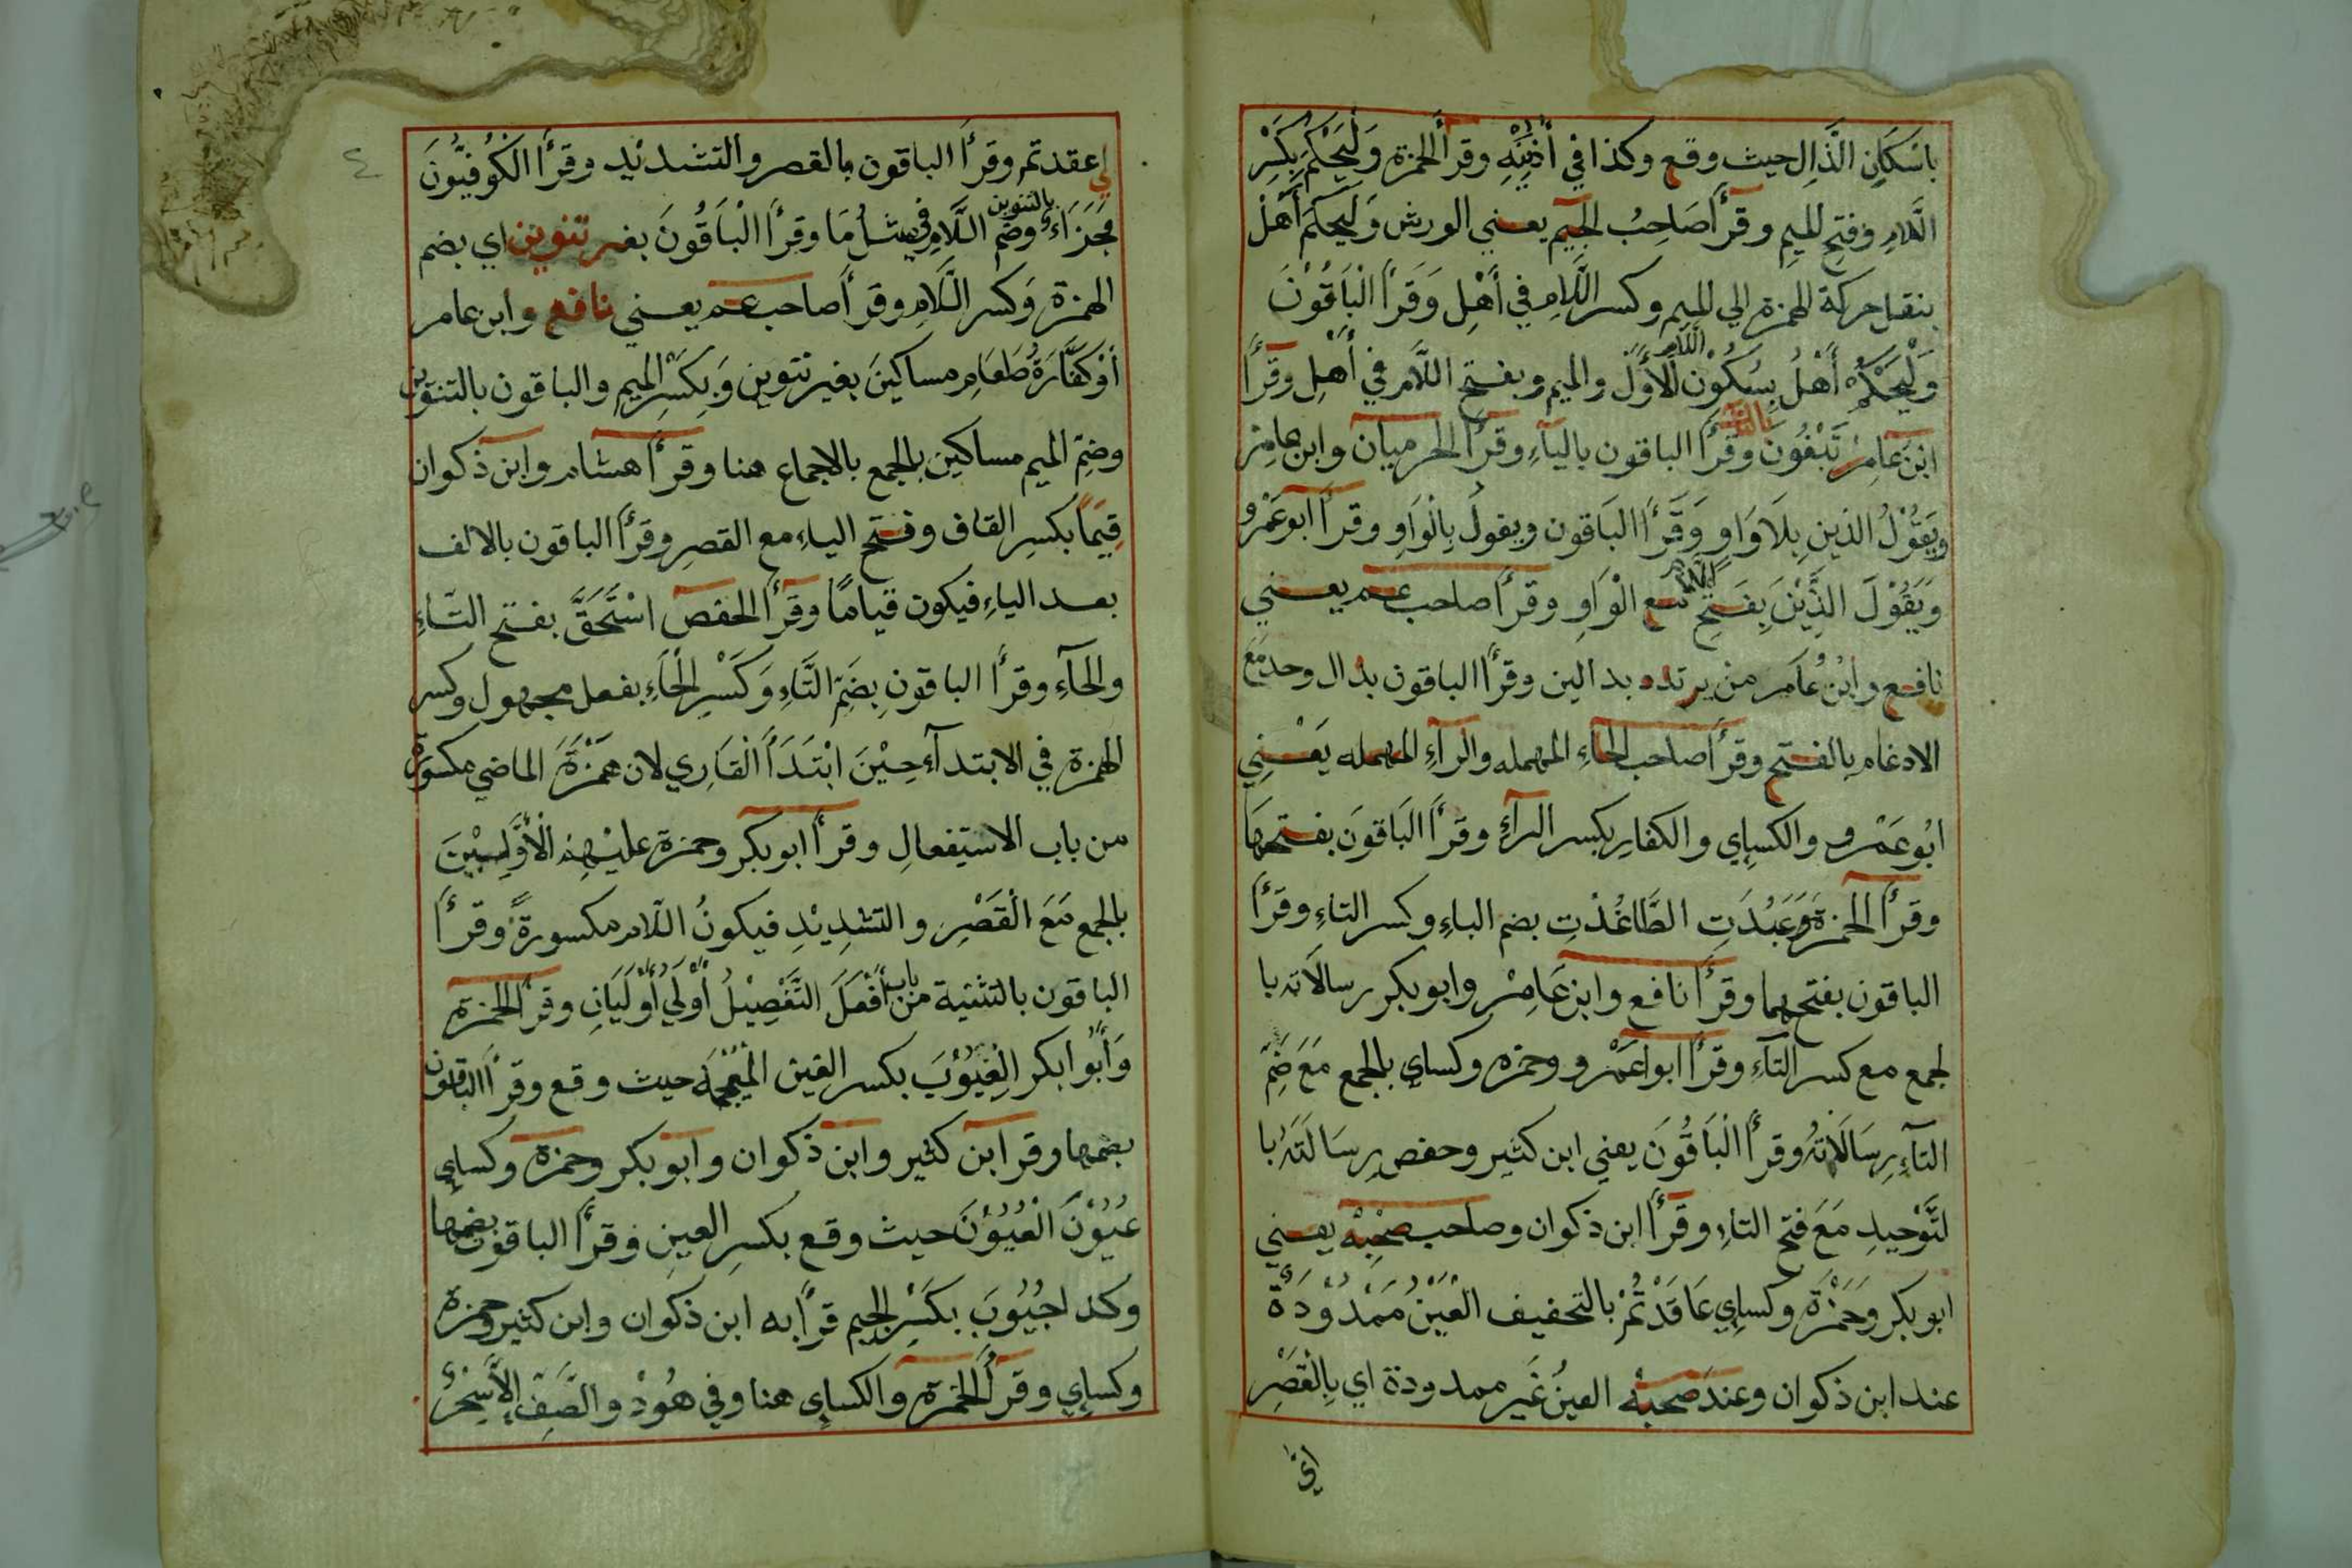 باسكان الذال حيث وقع وكذا في أذنيه وقرأ الحمزة وليحكم بكسر
اللام وفتح الميم وقرأ صاحب الجيم يعني الورش وليحكم أهل
بنقل حركة الهمزة الي الميم وكسر اللام في أهل وقرأ الباقون
وليحكم أهل بسكون اللام الأول والميم وبفتح اللام في أهل وقرأ
ابن عامر تبغون بالتاء وقرأ الباقون بالياء وقرأ الحرميان وابن عامر
ويقول الذين بلا واو وقرأ الباقون ويقول بالواو وقرأ ابو عمرو
ويقول الذين بفتح اللام مع الواو وقرأ صاحب عم يعني
نافع وابن عامر من يرتدد بدالين وقرأ الباقون بدال وحد مع
الادغام بالفتح وقرأ صاحب الحاء المهمله والراء المهمله يعني
ابو عمرو والكساي والكفار بكسر الراء وقرأ الباقون بفتحها
وقرأ الحمزة وعبدت الطاغذت بضم الباء وكسر التاء وقرأ
الباقون بفتحهما وقرأ نافع وابن عامر وابو بكر رسالاته با
لجمع مع كسر التاء وقرأ ابوا عمرو وحمزه وكساي بالجمع مع ضم
التاء برسالاته وقرأ الباقون يعني ابن كثير وحفص برسالته با
لتوحيد مع فتح التاء وقرأ ابن ذكوان وصاحب صحبه يعني
ابو بكر وحمزة وكساي عاقدتم بالتخفيف العين ممدودة
عند ابن ذكوان وعند صحبه العين غير ممدودة اي بالقصر
اي
اي عقدتم وقرأ الباقون بالقصر والتشديد وقرأ الكوفيون
فجزاء بالتنوين وضم اللام في مثل ما وقرأ الباقون بغير تنوين اي بضم
الهمزة وكسر اللام وقرأ صاحب عم يعني نافع وابن عامر
أو كفارة طعام مساكين بغير تنوين وبكسر الميم والباقون بالتنوين
وضم الميم مساكين بالجمع بالاجماع هنا وقرأ هشام وابن ذكوان
قيما بكسر القاف وفتح الياء مع القصر وقرأ الباقون بالالف
بعد الياء فيكون قياما وقرأ الحفص استحق بفتح التاء
والحاء وقرأ الباقون بضم التاء وكسر الحاء بفعل مجهول وكسر
الهمزة في الابتداء حين ابتدأ القاري لان همزة الماضي مكسورة
من باب الاستيفعال وقرأ ابو بكر وحمزة عليهم الأولين
بالجمع مع القصر والتشديد فيكون اللام مكسورة وقرأ
الباقون بالتثنية من باب أفعل التفصيل أولي أوليان وقرأ الحمزة
وأبوا بكر الغيوب بكسر الغين المعجمة حيث وقع وقرأ الباقون
بضمها وقر ابن كثير وابن ذكوان وابو بكر وحمزة وكساي
عيون العيون حيث وقع بكسر العين وقرأ الباقون بضمها
وكذا جيوب بكسر الجيم قرأ به ابن ذكوان وابن كثير وحمزة
وكساي وقرأ الحمزة والكساي هنا وفي هود والصف الا سحر